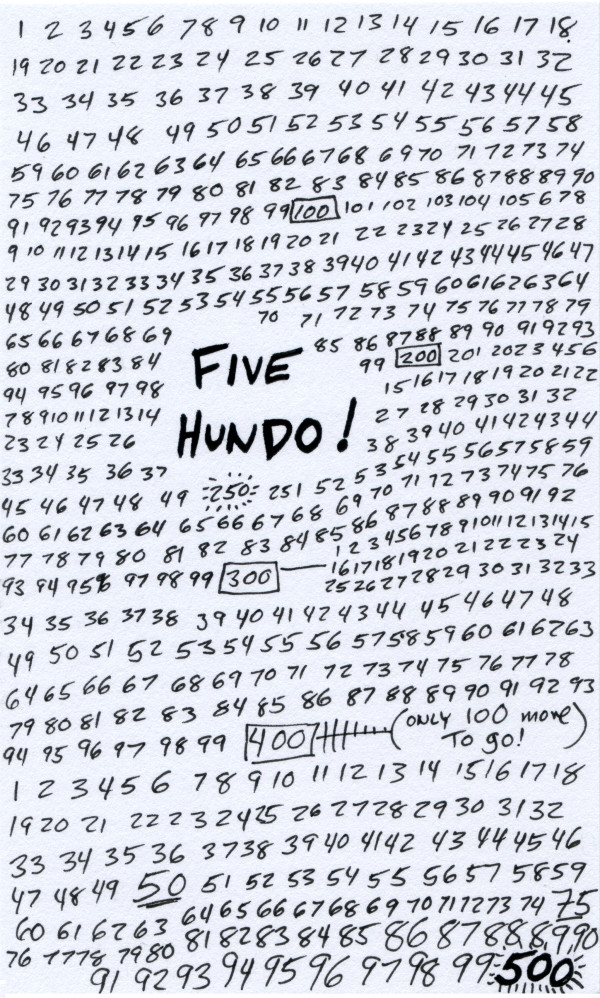 1 2 3 4 5 6 7 8 9 10 11 12 13 14 15 16 17 18
19 20 21 22 23 24 25 26 27 28 29 30 31 32
33 34 35 36 37 38 39 40 41 42 43 44 45
46 47 48 49 50 51 52 53 54 55 56 57 58
59 60 61 62 63 64 65 66 67 68 69 70 71 72 73 74
75 76 77 78 79 80 81 82 83 84 85 86 87 88 89 90
91 92 93 94 95 96 97 98 99 100 101 102 103 104 105 6 7 8
9 10 11 12 13 14 15 16 17 18 19 20 21 22 23 24 25 26 27 28
29 30 31 32 33 34 35 36 37 38 39 40 41 42 43 44 45 46 47
48 49 50 51 52 53 54 55 56 57 58 59 60 61 62 63 64
65 66 67 68 69 70 71 72 73 74 75 76 77 78 79
80 81 82 83 84 85 86 87 88 89 90 91 92 93
94 95 96 97 98 99 200 201 202 3 4 5 6
7 8 9 10 11 12 13 14 15 16 17 18 19 20 21 22
23 24 25 26 27 28 29 30 31 32
33 34 35 36 37 38 39 40 41 42 43 44
FIVE
HUNDO!
45 46 47 48 49 250 251 52 53 54 55 56 57 58 59
60 61 62 63 64 65 66 67 68 69 70 71 72 73 74 75 76
77 78 79 80 81 82 83 84 85 86 87 88 89 90 91 92
93 94 95 96 97 98 99 300
1 2 3 4 5 6 7 8 9 10 11 12 13 14 15
16 17 18 19 20 21 22 23 24
25 26 27 28 29 30 31 32 33
34 35 36 37 38 39 40 41 42 43 44 45 46 47 48
49 50 51 52 53 54 55 56 57 58 59 60 61 62 63
64 65 66 67 68 69 70 71 72 73 74 75 76 77 78
79 80 81 82 83 84 85 86 87 88 89 90 91 92 93
94 95 96 97 98 99 400 (ONLY 100 more
TO go!)
1 2 3 4 5 6 7 8 9 10 11 12 13 14 15 16 17 18
19 20 21 22 23 24 25 26 27 28 29 30 31 32
33 34 35 36 37 38 39 40 41 42 43 44 45 46
47 48 49 50 51 52 53 54 55 56 57 58 59
60 61 62 63 64 65 66 67 68 69 70 71 72 73 74 75
76 77 78 79 80 81 82 83 84 85 86 87 88 89 90
91 92 93 94 95 96 97 98 99 500